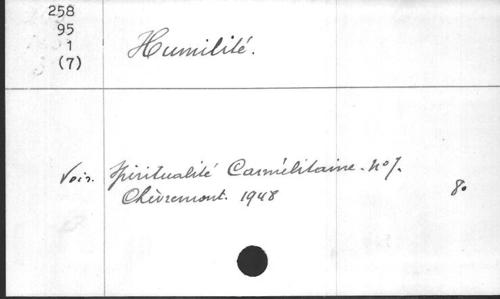 258
95
1
(7)
Humilité.
Voir. Spiritualité Carmélitaine. No 7.
Chèvremont. 1948
8o